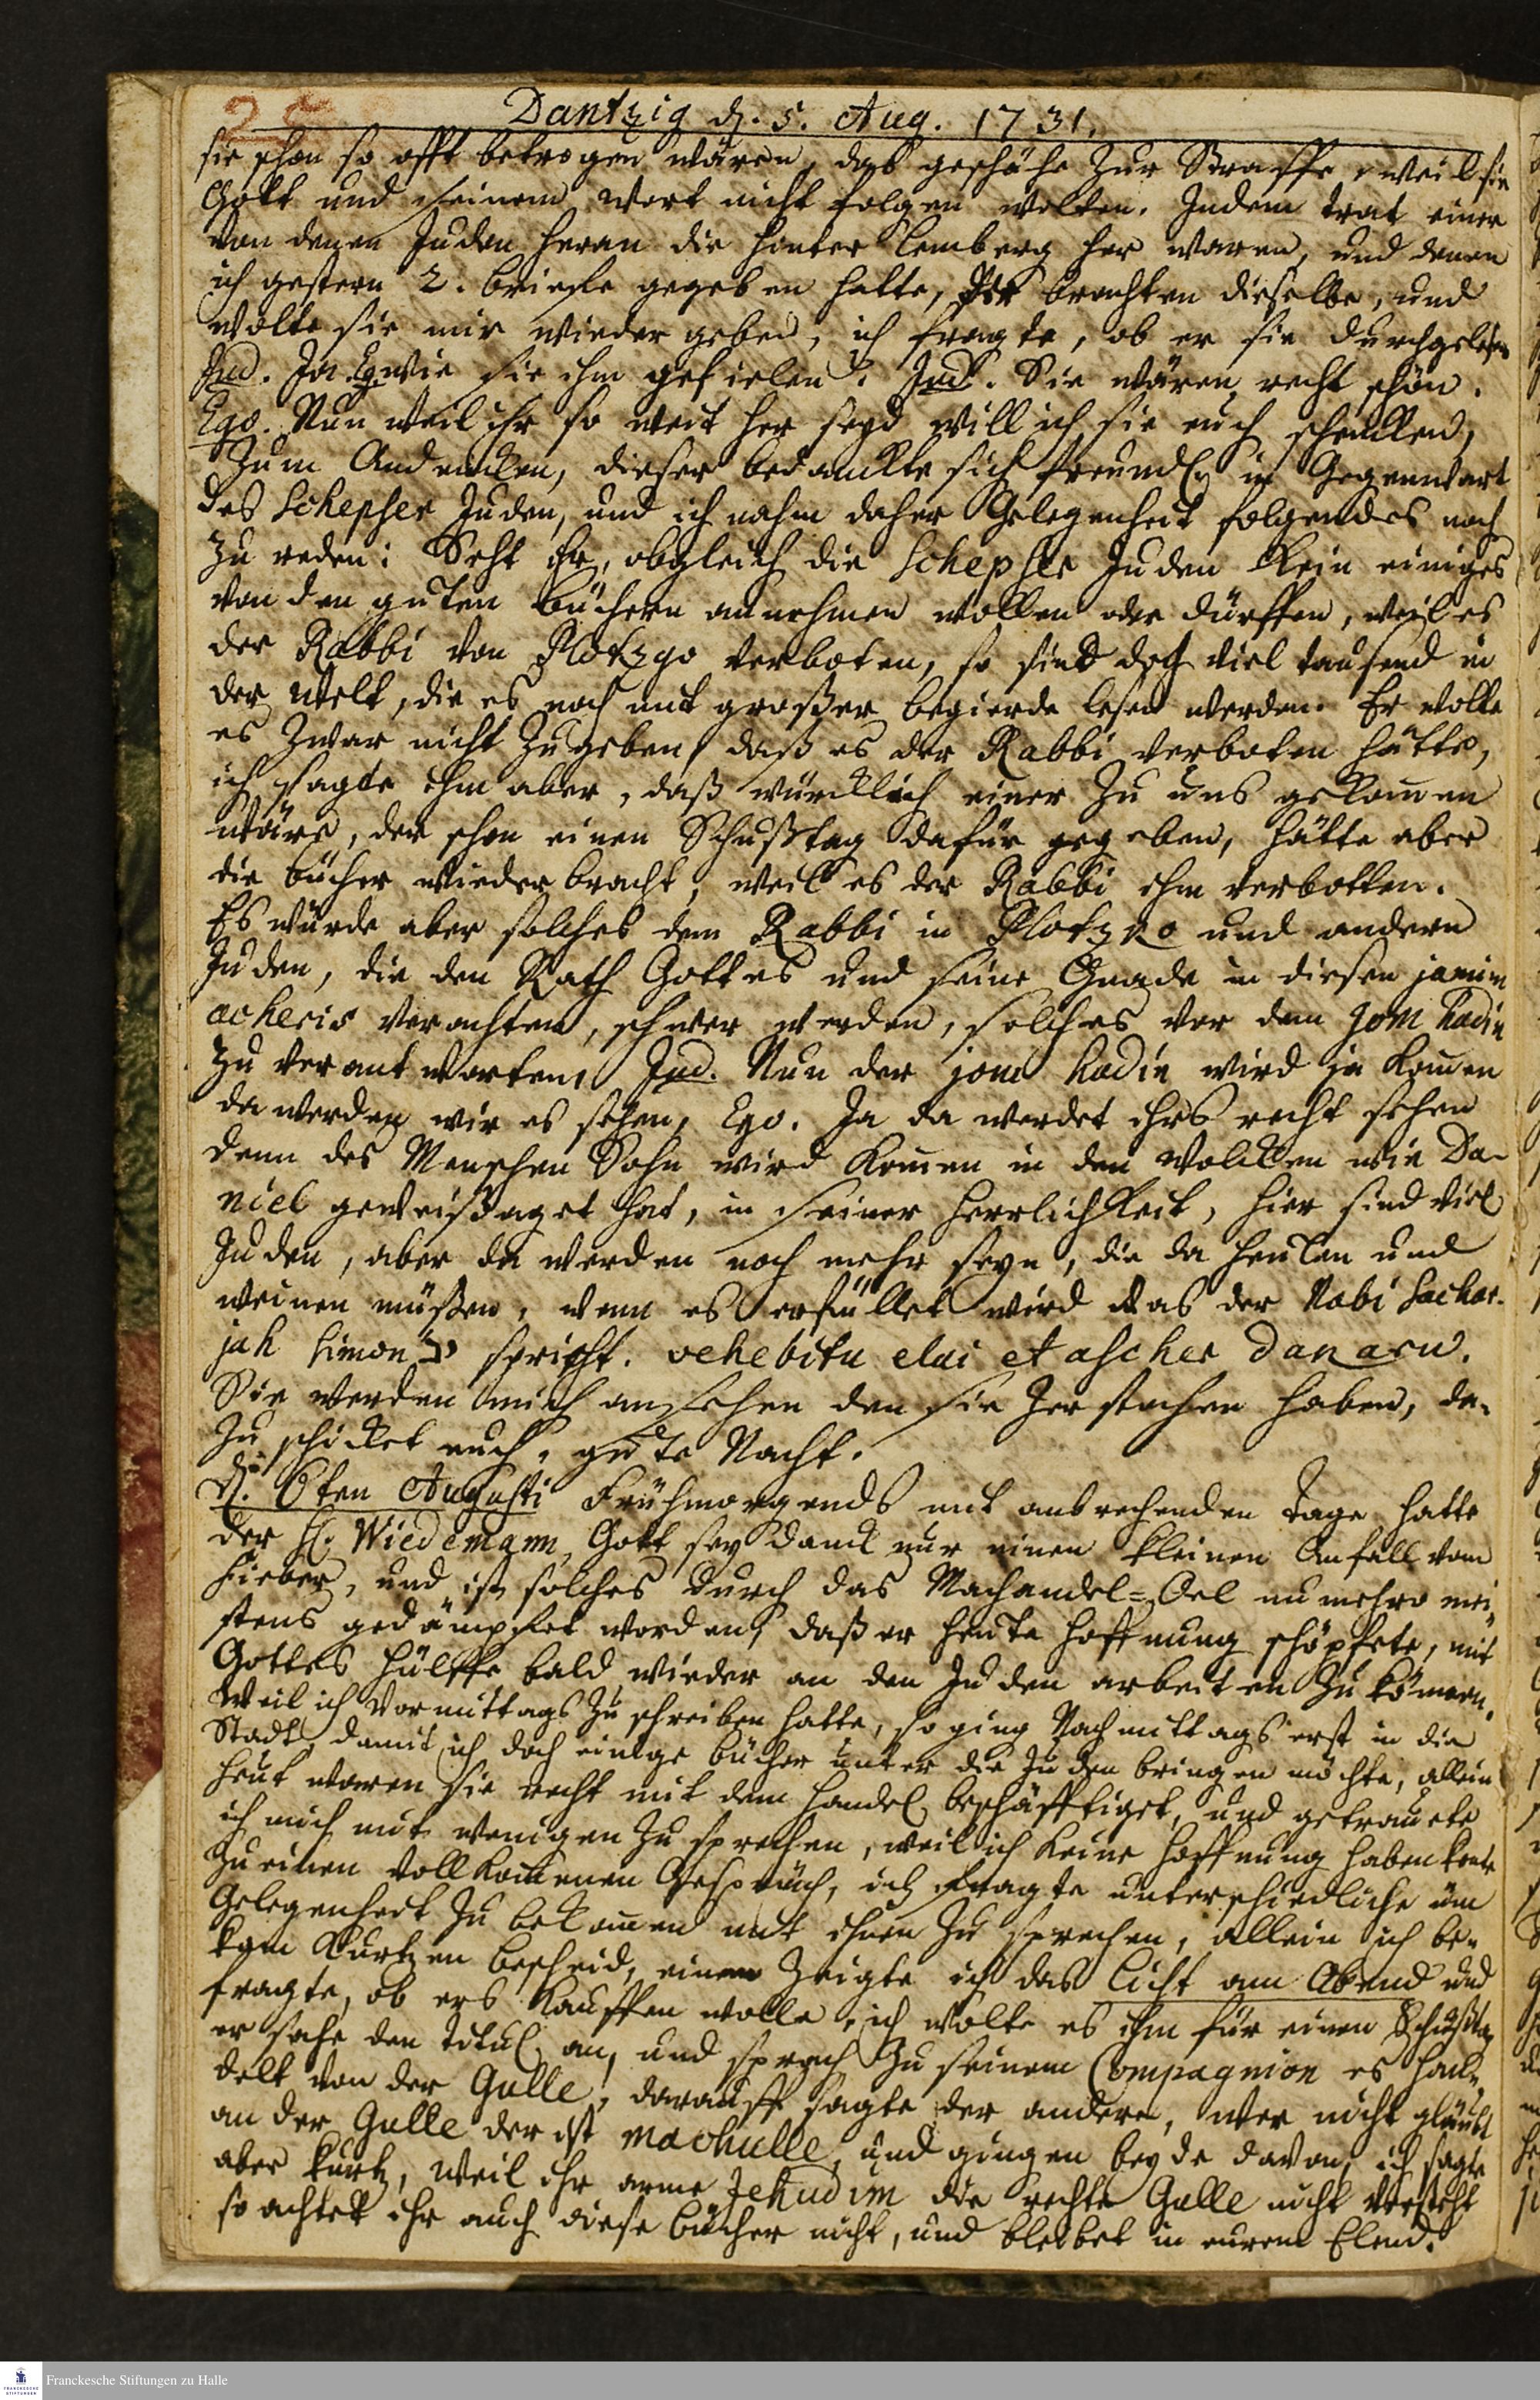 Dantzig d. 5. Aug. 1731.
sie schon so offt betrogen wären, das geschähe zur Straffe, weil sie
Gott und seinem wort nicht folgen wolten. Indem trat einer
von denen Juden heran die hinter Lemberg her waren, und denen
ich gestern 2. briefe gegeben hatte, der brachten dieselbe, und
wolte sie mir wieder geben, ich fragte, ob er sie durchgelesen
Jud. Ja. Eg. wie sie ihm gefielen? Jud. Sie wären recht schön.
Ego. Nun weil ihr so weit her seyd will ich sie euch schencken,
zum Andencken, dieser bedanckte sich freundl. in Gegenwart
des Schepser Juden, und ich nahm daher Gelegenheit folgendes noch
zu reden: Seht ihr, obgleich die Schepser Juden kein einiges
von den guten büchern annehmen wollen oder dürffen, weil es
der Rabbi von Plotzgo verboten, so sind doch viel tausend in
der Welt, die es noch mit großer begierde lesen werden. Er wolte
es zwar nicht zugeben, daß es der Rabbi verboten hätte,
ich sagte ihm aber, daß würcklich einer zu uns gekommen
wäre, der schon einen Schustag dafür gegeben, hätte aber
die bücher wieder bracht, weil es der Rabbi ihm verbotten.
Es würde aber solches dem Rabbi in Plotzko und andern
Juden, die den Rath Gottes und seine Gnade in diesen jamim
acheris verachten, schwer werden, solches vor dem Jom hadin
zu verantworten, Jud. Nun der jom hadin wird ja kommen
da werden wir es sehen, Ego. Ja da werdet ihrs recht sehen
denn des Menschen Sohn wird kommen in den Wolcken wie Da-
niel geweißaget hat, in seiner Herrlichkeit, hier sind viel
Juden, aber da werden noch mehr seyn, die da heulen und
weinen müßen, wenn es erfüllet wird was der Nabi Sachar-
jah Simon יב spricht. vehebitu elai et ascher danaru.
Sie werden mich ansehen den sie zerstochen haben, da-
zu schicket euch, gute Nacht.
d. 6ten Augusti Frühmorgends mit anbrechenden Tage hatte
der H. Wiedemann, Gott sey danck nur einen kleinen Anfall vom
Fieber, und ist solches durch das Machandel-Oel nunmehro mei-
stens gedämpfet worden, daß er heute Hoffnung schöpfete, mit
Gottes Hülffe bald wieder an den Juden arbeiten zu können.
Weil ich Vormittags zu schreiben hatte, so ging Nachmittags erst in die
Stadt, damit ich doch einige bücher unter die Juden bringen möchte, allein
heut waren sie recht mit dem Handel beschäfftiget, und getrauete
ich mich mit wenigen zu sprechen, weil ich keine Hoffnung haben konte
zu einen vollkommenen Gespräch, ich fragte unterschiedliche um
Gelegenheit zu bekommen mit ihnen zu sprechen, allein ich be-
kam kurtzen bescheid, einem zeigte ich das Licht am Abend und
fragte, ob ers kauffen wolle, ich wolte es ihm für einen Schustag
er sahe den Titul an, und sprach zu seinem Compagnion es han-
delt von der Gulle, darauff sagte der andere, wer nicht gläubt
an der Gulle der ist machulle, und gingen beyde davon, ich sagte
aber kurtz, weil ihr arme Jehudim die rechte Gulle nicht versteht
so achtet ihr auch diese bücher nicht, und bleibet in eurem Elend.
Franckesche Stiftungen zu Halle